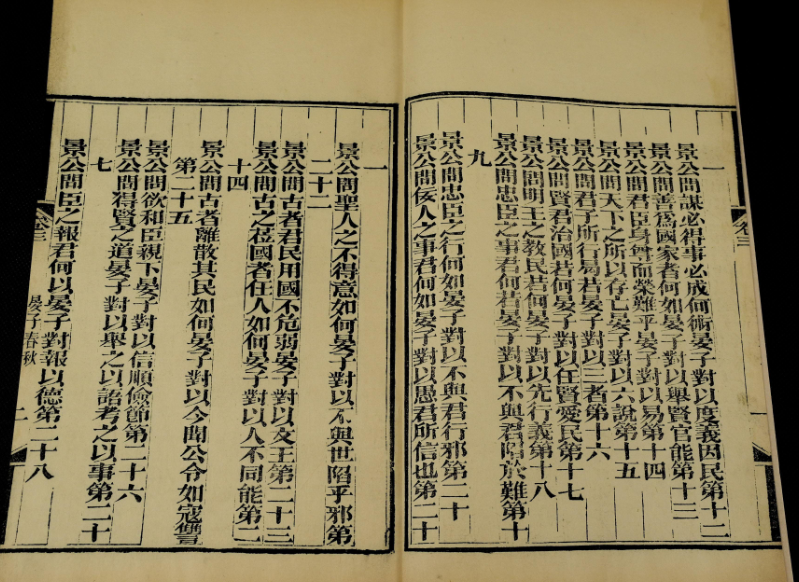 一
景公問謀必得事必成何術晏子對以度義因民第十二
景公問善爲國家者何如晏子對以舉賢官能第十三
景公問君臣身尊而榮難乎晏子對以易第十四
景公問天下之所以存亡晏子對以六說第十五
景公問君子常行曷若晏子對以三者第十六
景公問賢君治國若何晏子對以任賢愛民第十七
景公問明王之教民何若晏子對以先行義第十八
景公問忠臣之事君何若晏子對以不與君陷於難第十
九
景公問忠臣之行何如晏子對以不與君行邪第二十
景公問佞人之事君何如晏子對以愚君所信也第二十
一
景公問聖人之不得意如何晏子對以不與世陷乎邪第
二十二
景公問古者君民用國不危弱晏子對以文王第二十三
景公問古之莅國者任人如何晏子對以人不同能第二
十四
景公問古者離散其民如何晏子對以今聞公令如寇讐
第二十五
景公問欲和臣親下晏子對以信順儉節第二十六
景公問得賢之道晏子對以舉之以語考之以事第二十
七
景公問臣之報君何以晏子對報以德第二十八
卷三
晏子春秋
二